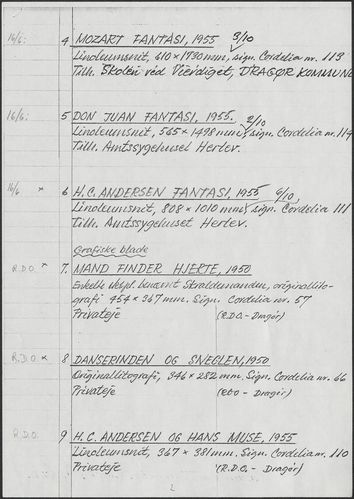 16/6. 4 MOZART FANTASI, 1955 3/10
Linoleumsnit, 610 x 1730 mm, sign. Cordelia nr. 113
Tilh. Skolen ved Vierdiget, DRAGØR KOMMUNE
16/6. 5 DON JUAN FANTASI, 1955. 2/10
Linoleumsnit, 565 x 1498 mm, sign. Cordelia nr. 114
Tilh. Amtssygehuset Herlev.
16/6 x 6 H.C. ANDERSEN FANTASI, 1955 6/10
Linoleumsnit, 808 x 1010 mm, sign. Cordelia 111
Tilh. Amtssygehuset Herlev.
Grafiske blade
R.D.O. x 7. MAND FINDER HJERTE, 1950
Enkelte ekspl. benævnt Skraldemanden, originallito-
grafi 454 x 367 mm. Sign. Cordelia nr. 57
Privateje (R.D.O. - Dragør)
R.D.O. x 8 DANSERINDEN OG SNEGLEN, 1950
Originallitografi, 346 x 282 mm. Sign. Cordelia nr. 66
Privateje (RDO - Dragør)
R.D.O. 9 H.C. ANDERSEN OG HANS MUSE, 1955
Linoleumsnit, 367 x 381 mm. Sign. Cordelia nr. 110
Privateje (R.D.O. - Dragør)
2